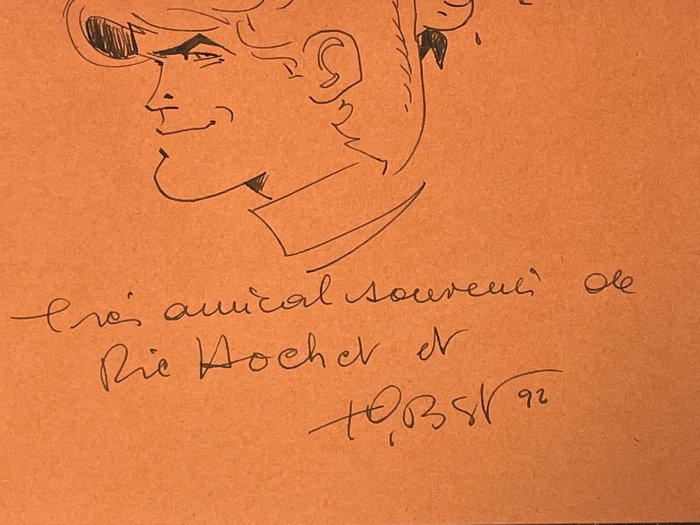 Très amical souvenir de
Ric Hochet et
Tibet 92